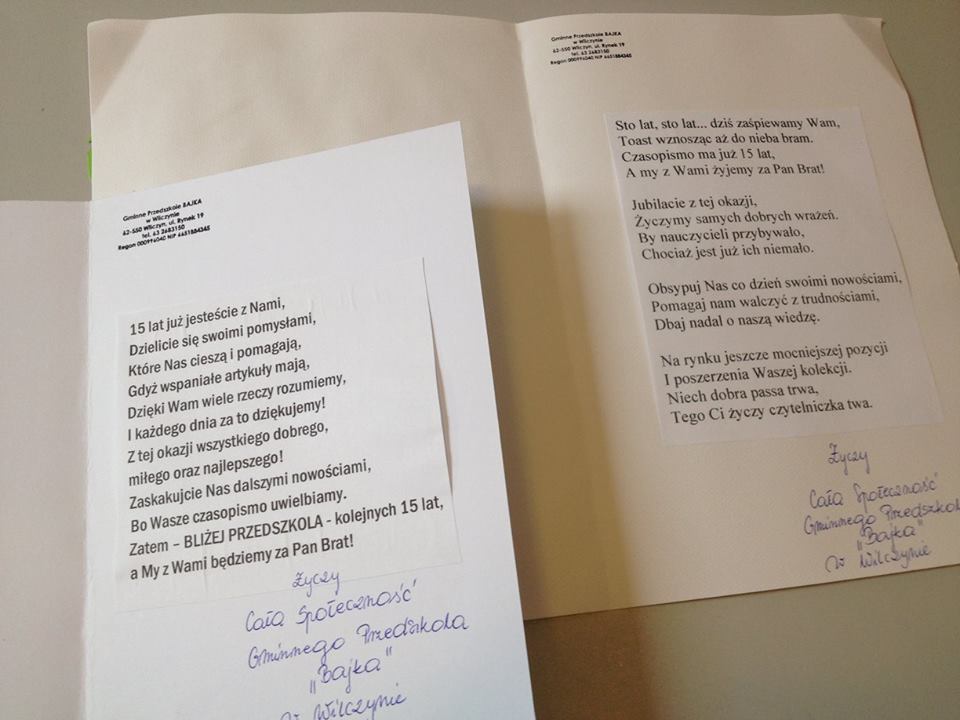 Gminne Przedszkole BAJKA
w Wilczynie
62-550 Wilczyn, ul. Rynek 19
tel. 63 2683150
Regon 000996040 NIP 6651884345
15 lat już jesteście z Nami,
Dzielicie się swoimi pomysłami,
Które Nas cieszą i pomagają,
Gdyż wspaniałe artykuły mają,
Dzięki Wam wiele rzeczy rozumiemy,
I każdego dnia za to dziękujemy!
Z tej okazji wszystkiego dobrego,
miłego oraz najlepszego!
Zaskakujcie Nas dalszymi nowościami,
Bo Wasze czasopismo uwielbiamy.
Zatem – BLIŻEJ PRZEDSZKOLA - kolejnych 15 lat,
a My z Wami będziemy za Pan Brat!
Życzy
Cała Społeczność
Gminnego Przedszkola
"Bajka"
w Wilczynie
Gminne Przedszkole BAJKA
w Wilczynie
62-550 Wilczyn, ul. Rynek 19
tel. 63 2683150
Regon 000996040 NIP 6651884345
Sto lat, sto lat... dziś zaśpiewamy Wam,
Toast wznosząc aż do nieba bram.
Czasopismo ma już 15 lat,
A my z Wami żyjemy za Pan Brat!
Jubilacie z tej okazji,
Życzymy samych dobrych wrażeń.
By nauczycieli przybywało,
Chociaż jest już ich niemało.
Obsypuj Nas co dzień swoimi nowościami,
Pomagaj nam walczyć z trudnościami,
Dbaj nadal o naszą wiedzę.
Na rynku jeszcze mocniejszej pozycji
I poszerzenia Waszej kolekcji.
Niech dobra passa trwa,
Tego Ci życzy czytelniczka twa.
Życzy
Cała Społeczność
Gminnego Przedszkol
"Bajka"
w Wilczynie